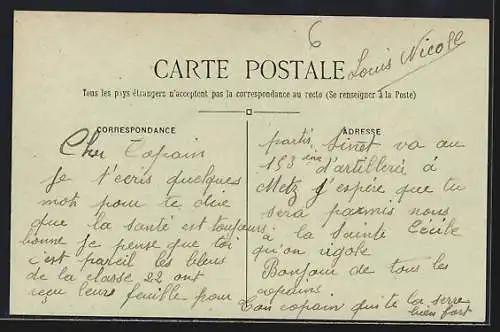 6
Louis Nicole
CARTE POSTALE
Tous les pays étrangers n'acceptent pas la correspondance au recto (Se renseigner à la Poste)
CORRESPONDANCE
Cher Copain
Je t'ecris quelques
mots pour te dire
que la santé est toujours
bonne je pense que toi
c'est pareil les bleus
de la classe 22 ont
reçu leurs feuille pour
ADRESSE
partir Sinet va au
153 ème d'artillerie à
Metz J'espère que tu
sera parmis nous
à la sainte Cécile
qu'on rigole
Bonjour de tous les
copains
Ton copain qui te la serre
bien fort